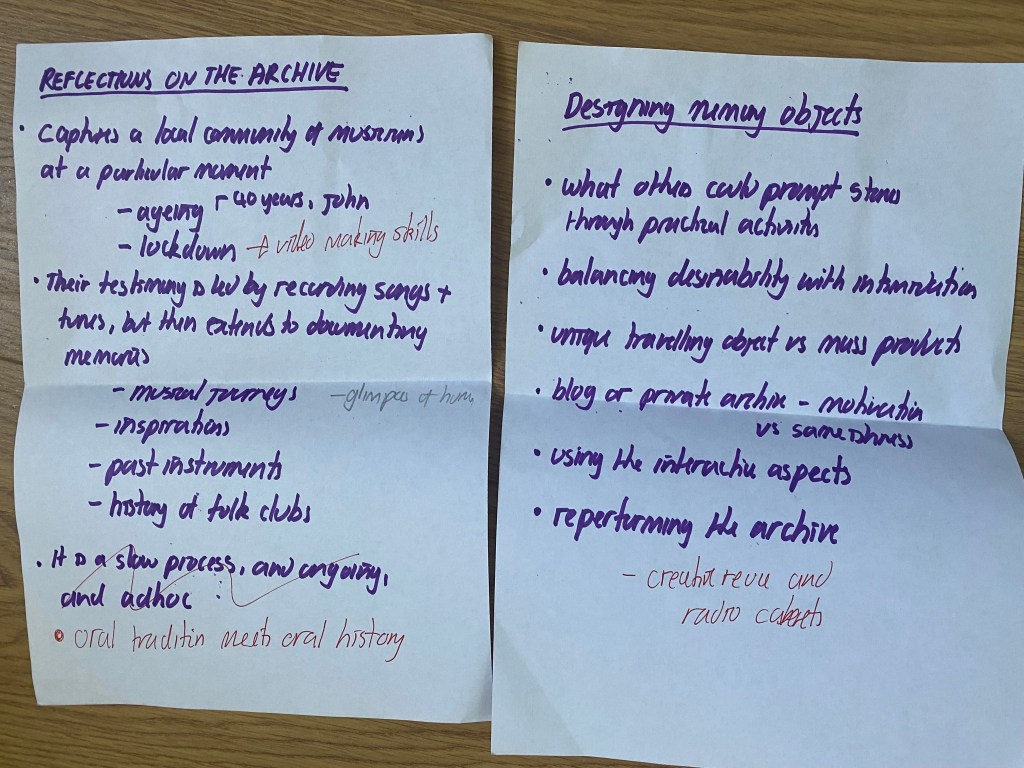 REFLECTIONS ON THE ARCHIVE
• Captures a local community of musicians
at a particular moment
- ageing - 40 years, John
- lockdown → video making skills
• Their testimony is led by recording songs +
tunes, but then extends to documenting
memories
- musical journeys - glimpses of
- inspirations
- past instruments
- history of folk clubs
• It is a slow process, and ongoing,
and adhoc
• oral tradition meets oral history
Designing memory objects
• what others could prompt stories
through practical activities
• balancing desirability with intimidation
• unique travelling object vs mass products
• blog or private archive - motivation
vs
• using the interactive aspects
• reperforming the archive
- creative reuse and
radio